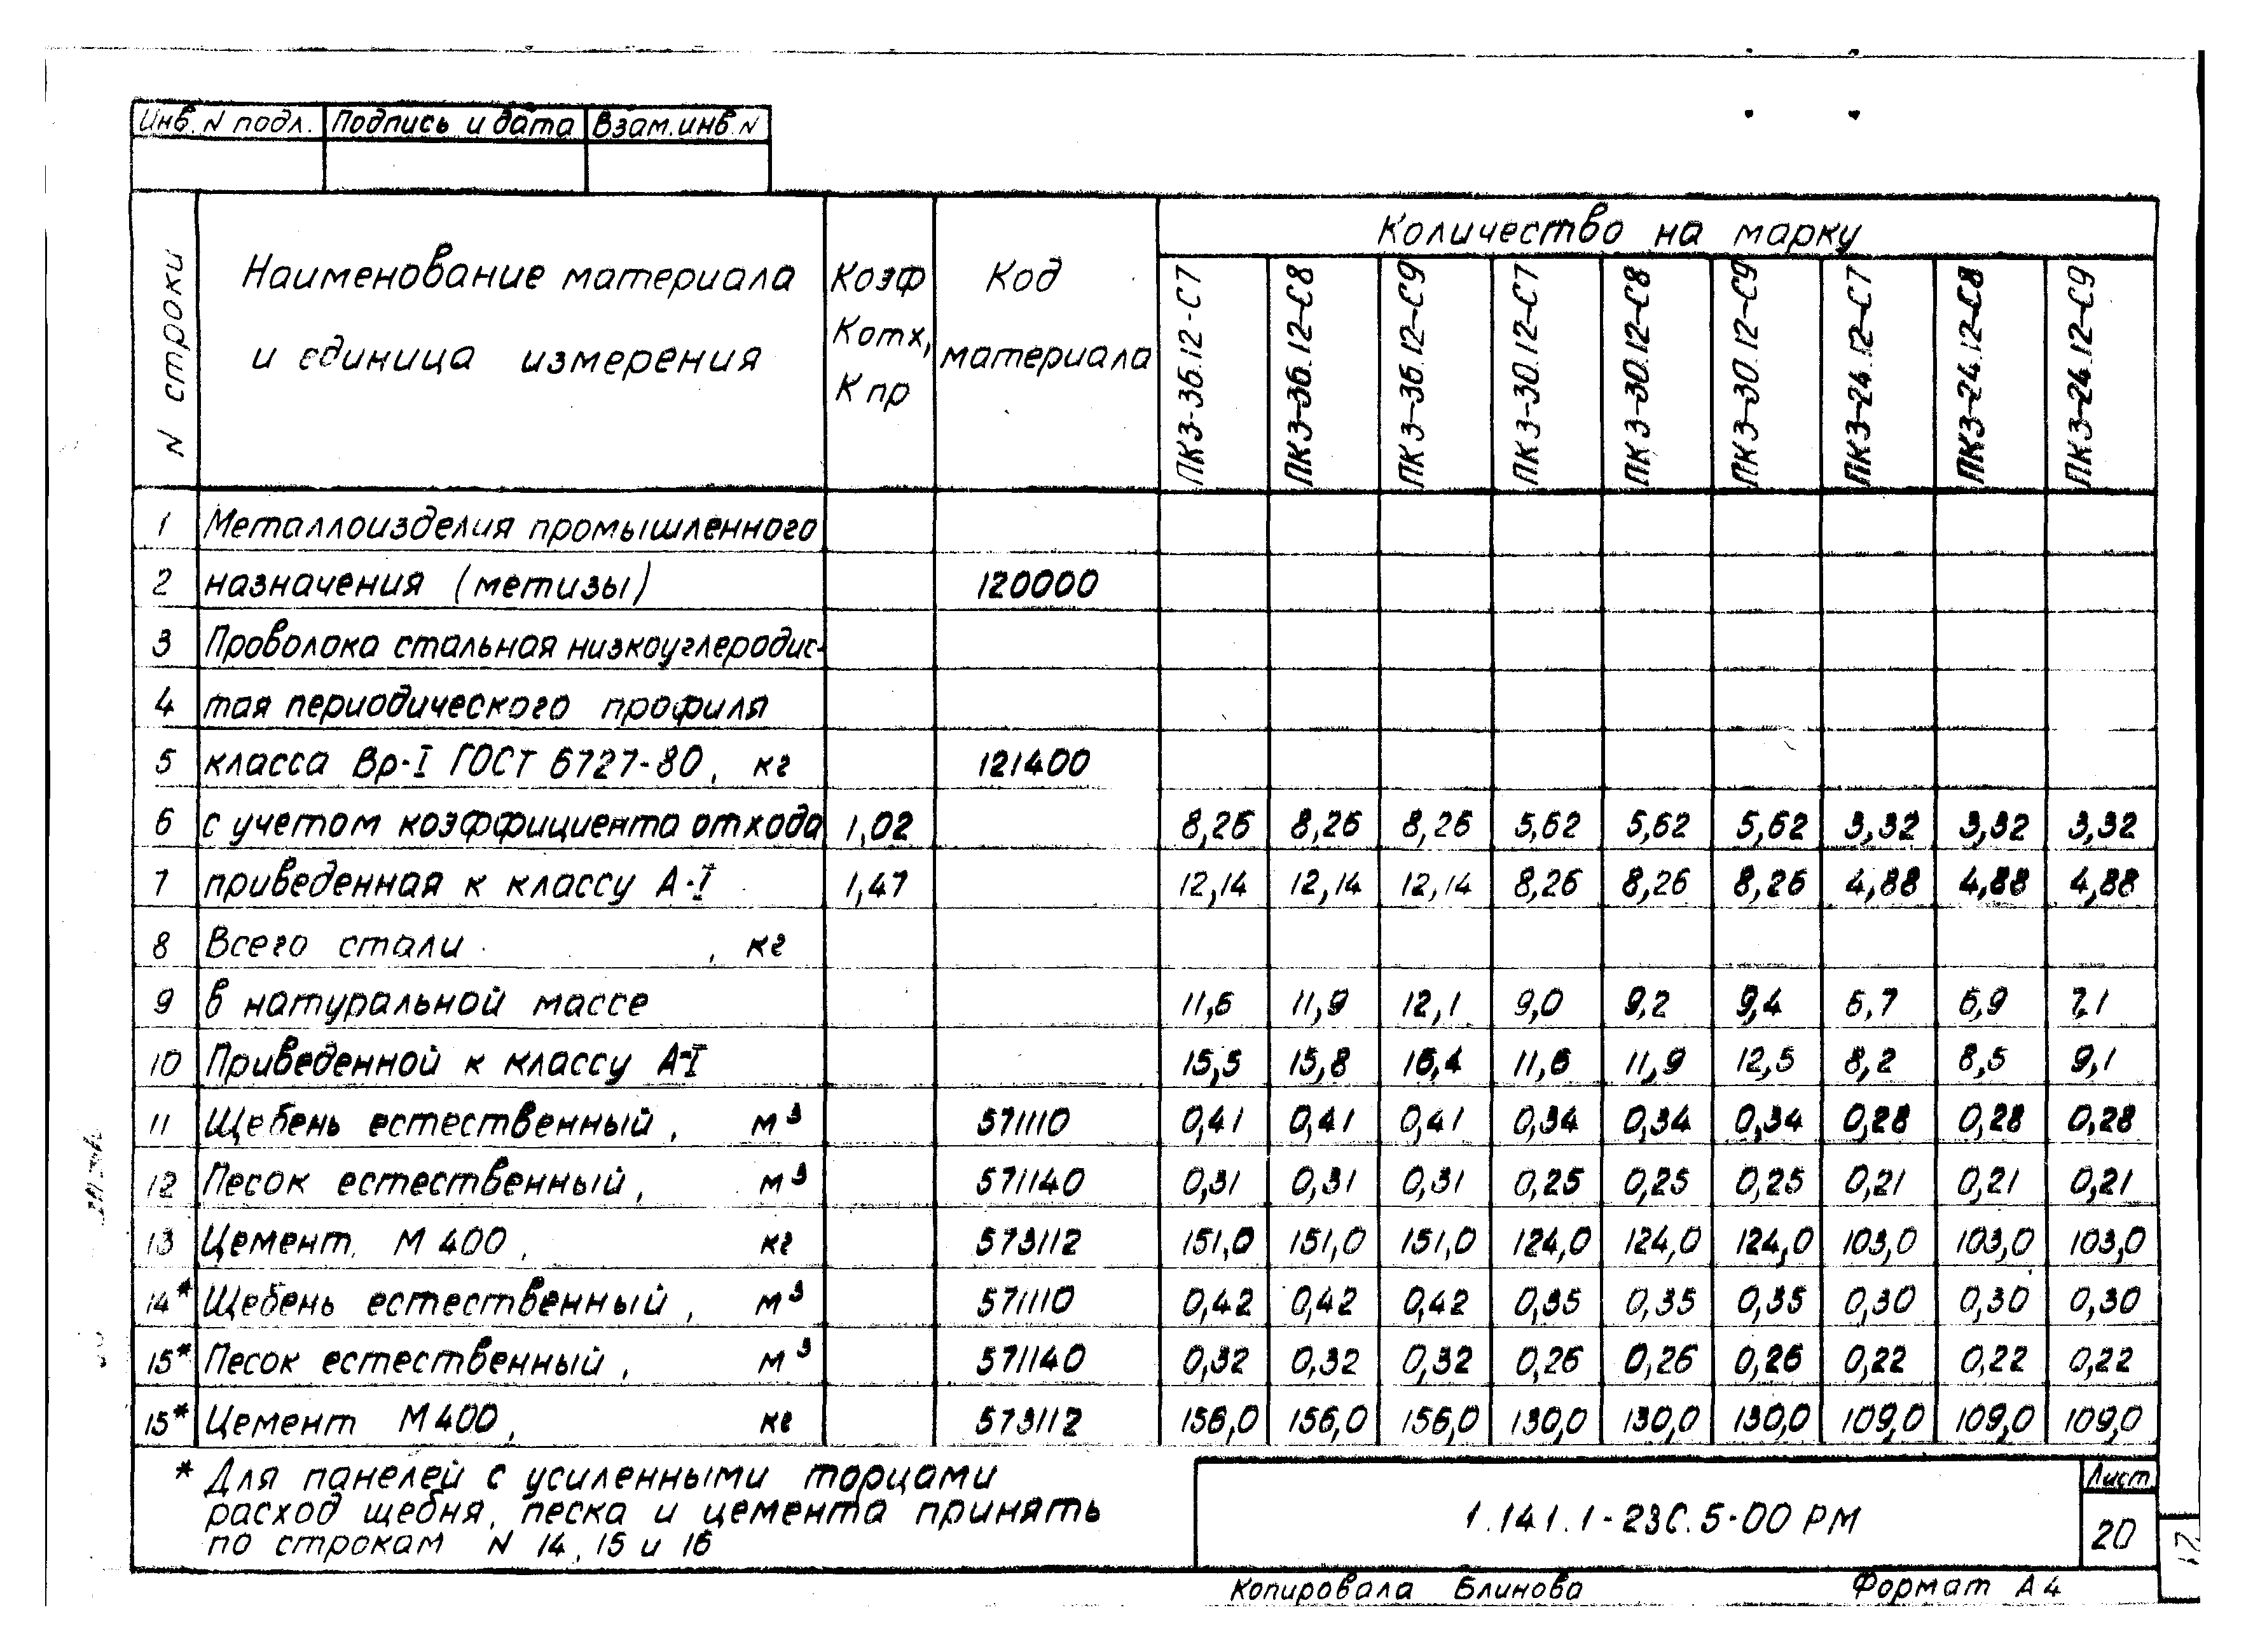 Инв. N подл. Подпись и дата Взам. инв N
N строки
Наименование материала
и единица измерения
Коэф
Котх,
К пр
Код
материала
Количество на марку
ПК3-36.12-С7 ПК3-36.12-С8 ПК3-36.12-С9 ПК3-30.12-С7 ПК3-30.12-С8 ПК3-30.12-С9 ПК3-24.12-С7 ПК3-24.12-С8 ПК3-24.12-С9
1 Металлоизделия промышленного
2 назначения (метизы) 120000
3 Проволока стальная низкоуглеродис-
4 тая периодического профиля
5 класса Вр-I ГОСТ 6727-80, кг 121400
6 с учетом коэффициента отхода 1,02 8,26 8,26 8,26 5,62 5,62 5,62 3,32 3,32 3,32
7 приведенная к классу А-I 1,47 12,14 12,14 12,14 8,26 8,26 8,26 4,88 4,88 4,88
8 Всего стали , кг
9 в натуральной массе 11,6 11,9 12,1 9,0 9,2 9,4 6,7 6,9 7,1
10 Приведенной к классу А-I 15,5 15,8 16,4 11,6 11,9 12,5 8,2 8,5 9,1
11 Щебень естественный, м³ 571110 0,41 0,41 0,41 0,34 0,34 0,34 0,28 0,28 0,28
12 Песок естественный, м³ 571140 0,31 0,31 0,31 0,25 0,25 0,25 0,21 0,21 0,21
13 Цемент М 400, кг 573112 151,0 151,0 151,0 124,0 124,0 124,0 103,0 103,0 103,0
14* Щебень естественный, м³ 571110 0,42 0,42 0,42 0,35 0,35 0,35 0,30 0,30 0,30
15* Песок естественный, м³ 571140 0,32 0,32 0,32 0,26 0,26 0,26 0,22 0,22 0,22
15* Цемент М400, кг 573112 156,0 156,0 156,0 130,0 130,0 130,0 109,0 109,0 109,0
* Для панелей с усиленными торцами
расход щебня, песка и цемента принять
по строкам N 14, 15 и 16
1.141.1-23С.5-00 РМ
Лист
20
Копировала Блинова Формат А4